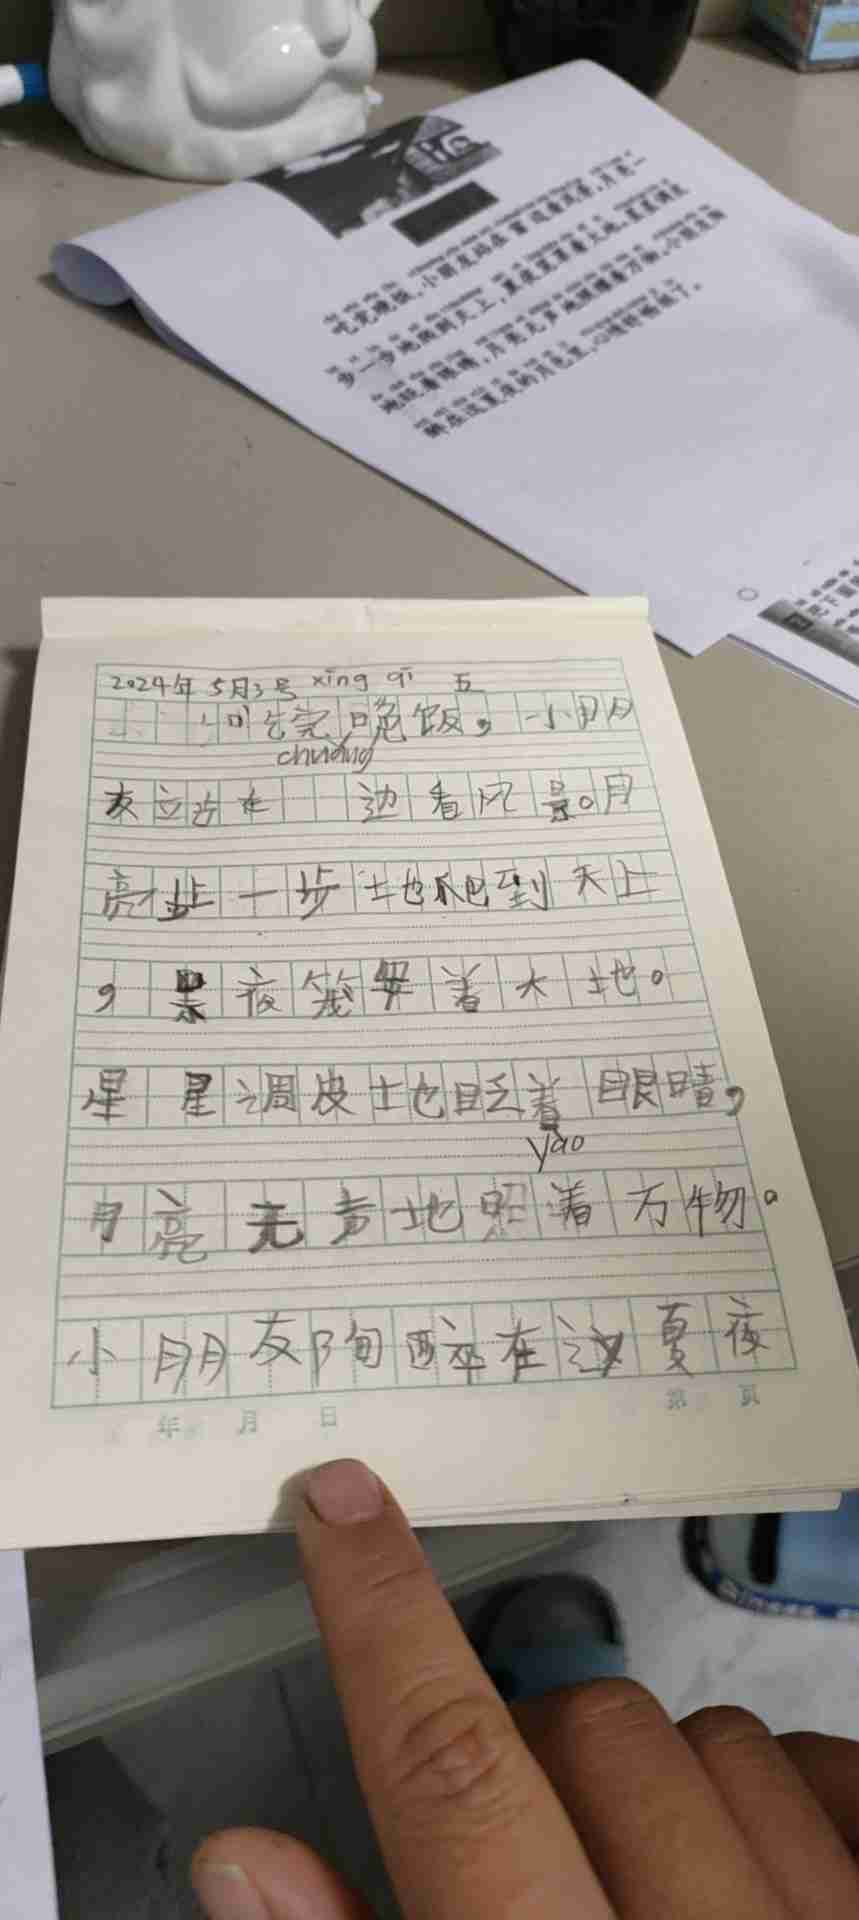 吃完晚饭，小朋友站在窗边看风景，月亮一
步一步地爬到天上，黑夜笼罩着大地。星星调皮
地眨着眼睛，月亮无声地照耀着万物。小朋友陶
醉在这夏夜的月色里，心情舒畅极了。
把下面
2024年5月3号 xīng qī 五
吃完晚饭，小朋
chuāng
友站在 边看风景。月
亮一步一步地爬到天上
，黑夜笼罩着大地。
星星调皮地眨着眼睛，
yào
月亮无声地照着万物。
小朋友陶醉在这夏夜
年 月 日 第 页